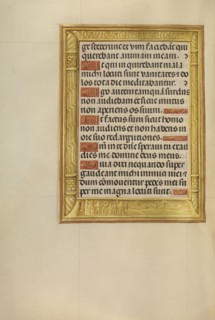 ge steterunt et vim faciebāt qui
querebant animam meam.
Et qui inquirebant mala
michi locuti sunt vanitates: et do
los tota die meditabantur.
Ego autem tamquā surdus
non audiebam et sicut mutus
non aperiens os suum.
Et factus sum sicut homo
non audiens et non habens in
ore suo redargutiones.
in te dñe speraui tu exau
dies me domine deus meus.
Quia dixi nequando super
gaudeant michi inimici mei: et
dum cōmouentur pedes mei su
per me magna locuti sunt.